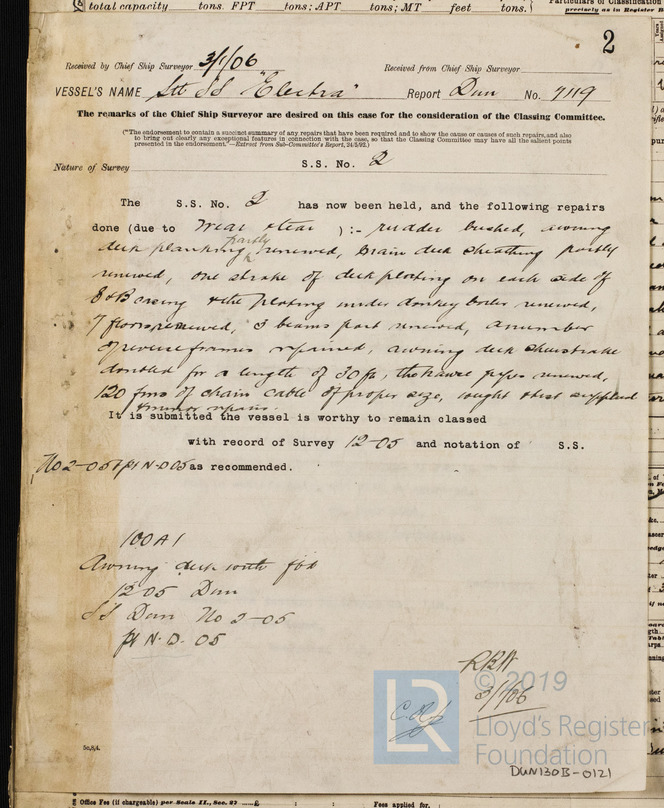 total capacity tons. FPT tons; APT tons; MT feet tons.
Particulars of Classification
precisely as in Register B
2
Received by Chief Ship Surveyor 3/1/06 Received from Chief Ship Surveyor
VESSEL'S NAME SS "Electra" Report Dun No. 7119
The remarks of the Chief Ship Surveyor are desired on this case for the consideration of the Classing Committee.
("The endorsement to contain a succinct summary of any repairs that have been required and to show the cause or causes of such repairs, and also
to bring out clearly any exceptional features in connection with the case, so that the Classing Committee may have all the salient points
presented in the endorsement."—Extract from Sub-Committee's Report, 24/5/92.)
Nature of Survey S.S. No. 2
The S.S. No. 2 has now been held, and the following repairs
done (due to wear & tear ) :- rudder bushed, awning
deck planking partly renewed, main deck sheathing partly
renewed, one strake of deck plating on each side of
E & B casing & the plating under donkey boiler renewed,
7 floors renewed, 3 beams part renewed, a number
of reverse frames repaired, awning deck sheerstrake
doubled for a length of 30 ft, the hawse pipes renewed,
120 fms of chain cable of proper size, supplied
& minor repairs.
It is submitted the vessel is worthy to remain classed
with record of Survey 12-05 and notation of S.S.
No 2-05 & N.D. 05 as recommended.
100A1
Awning deck with fbd
12.05 Dun
SS Dun No 2-05
N.D. 05
3/1/06
© 2019
LR
Lloyd's Register
Foundation
DUN130B-0121
5c,8,4.
Office Fee (if chargeable) per Scale II., Sec. 27 £ : : Fees applied for.